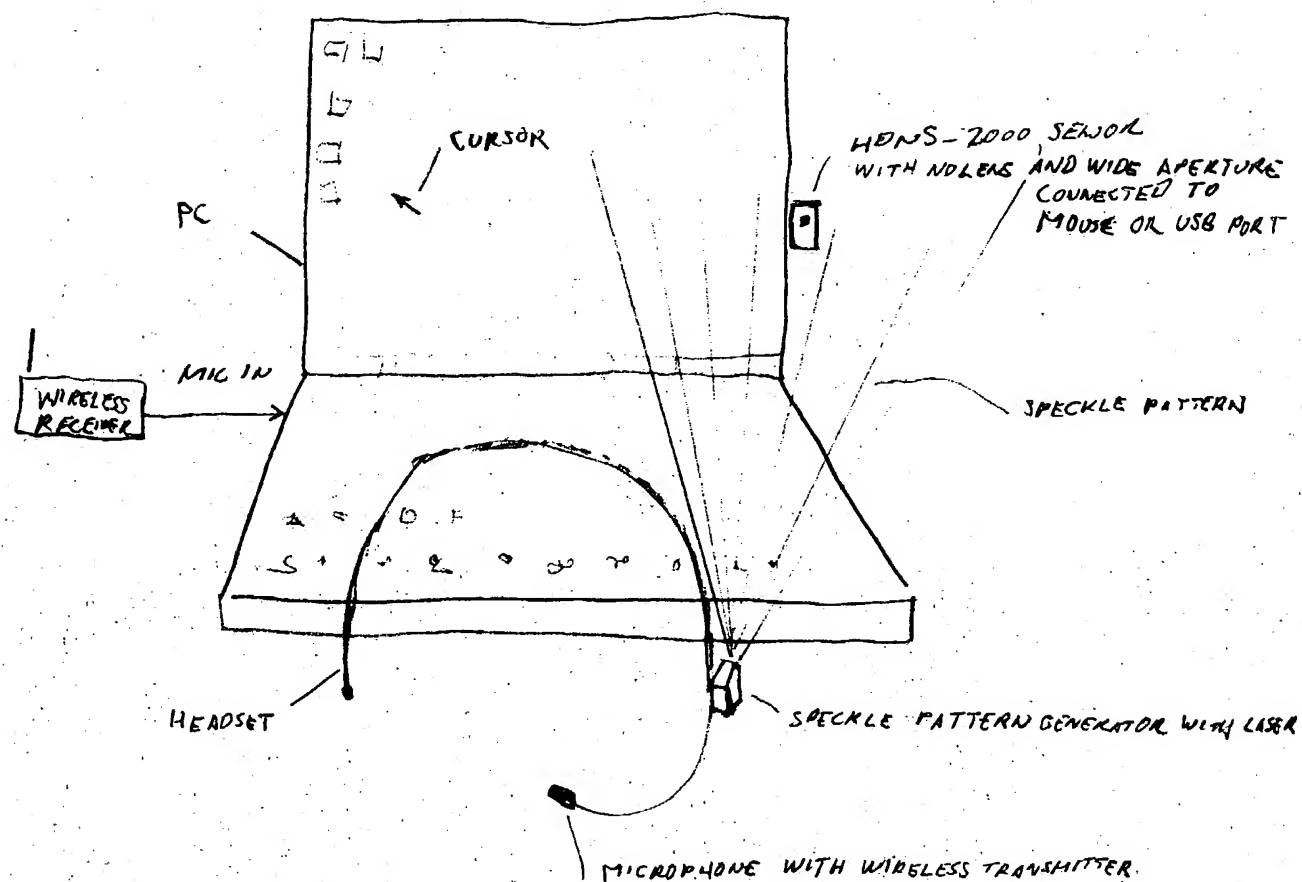 CURSOR
HDNS-2000 SENSOR
WITH NO LENS AND WIDE APERTURE
CONNECTED TO
MOUSE OR USB PORT
PC
MIC IN
WIRELESS
RECEIVER
SPECKLE PATTERN
HEADSET
SPECKLE PATTERN GENERATOR WITH LASER
MICROPHONE WITH WIRELESS TRANSMITTER.